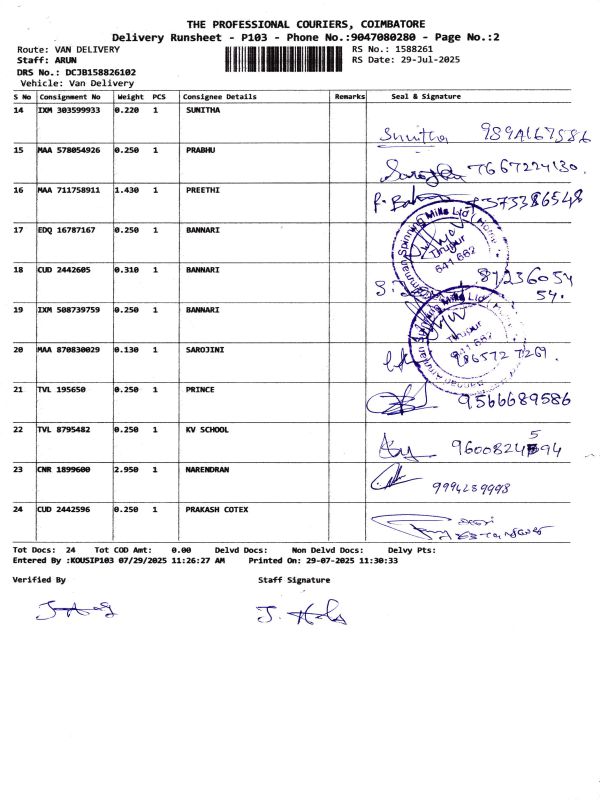 THE PROFESSIONAL COURIERS, COIMBATORE
Delivery Runsheet - P103 - Phone No.:9047080280 - Page No.:2
Route: VAN DELIVERY RS No.: 1588261
Staff: ARUN RS Date: 29-Jul-2025
DRS No.: DCJB158826102
Vehicle: Van Delivery
S No Consignment No Weight PCS Consignee Details Remarks Seal & Signature
14 IXM 303599933 0.220 1 SUNITHA
Sunitha 9894167586
15 MAA 578054926 0.250 1 PRABHU
7667224130.
16 MAA 711758911 1.430 1 PREETHI
17 EDQ 16787167 0.250 1 BANNARI
Spinning Mills Ltd
Tirupur
641 662
18 CUD 2442605 0.310 1 BANNARI
8723605454.
19 IXM 508739759 0.250 1 BANNARI
Mills Ltd
Tirupur
20 MAA 870830029 0.130 1 SAROJINI
21 TVL 195650 0.250 1 PRINCE
9566689586
22 TVL 8795482 0.250 1 KV SCHOOL
23 CNR 1899600 2.950 1 NARENDRAN
24 CUD 2442596 0.250 1 PRAKASH COTEX
Tot Docs: 24 Tot COD Amt: 0.00 Delvd Docs: Non Delvd Docs: Delvy Pts:
Entered By :KOUSIP103 07/29/2025 11:26:27 AM Printed On: 29-07-2025 11:30:33
Verified By Staff Signature